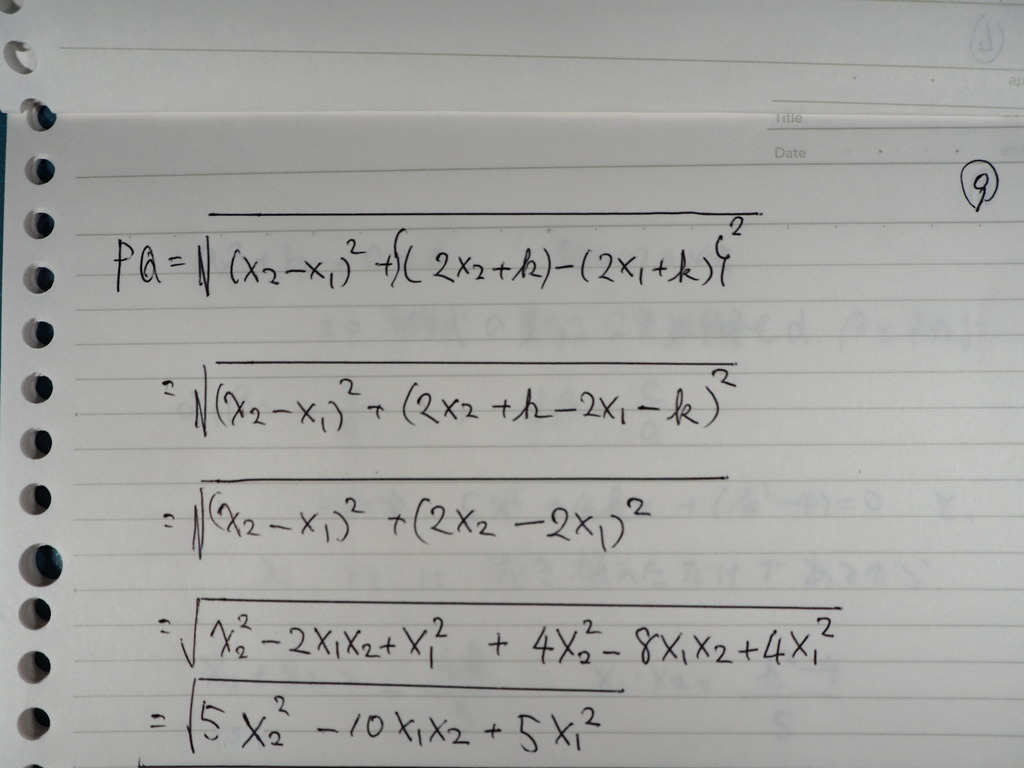 Title
Date
9
PQ = √(x₂-x₁)² + {(2x₂+k)-(2x₁+k)}²
= √(x₂-x₁)² + (2x₂+k-2x₁-k)²
= √(x₂-x₁)² + (2x₂-2x₁)²
= √x₂²-2x₁x₂+x₁² + 4x₂²-8x₁x₂+4x₁²
= √5x₂²-10x₁x₂+5x₁²